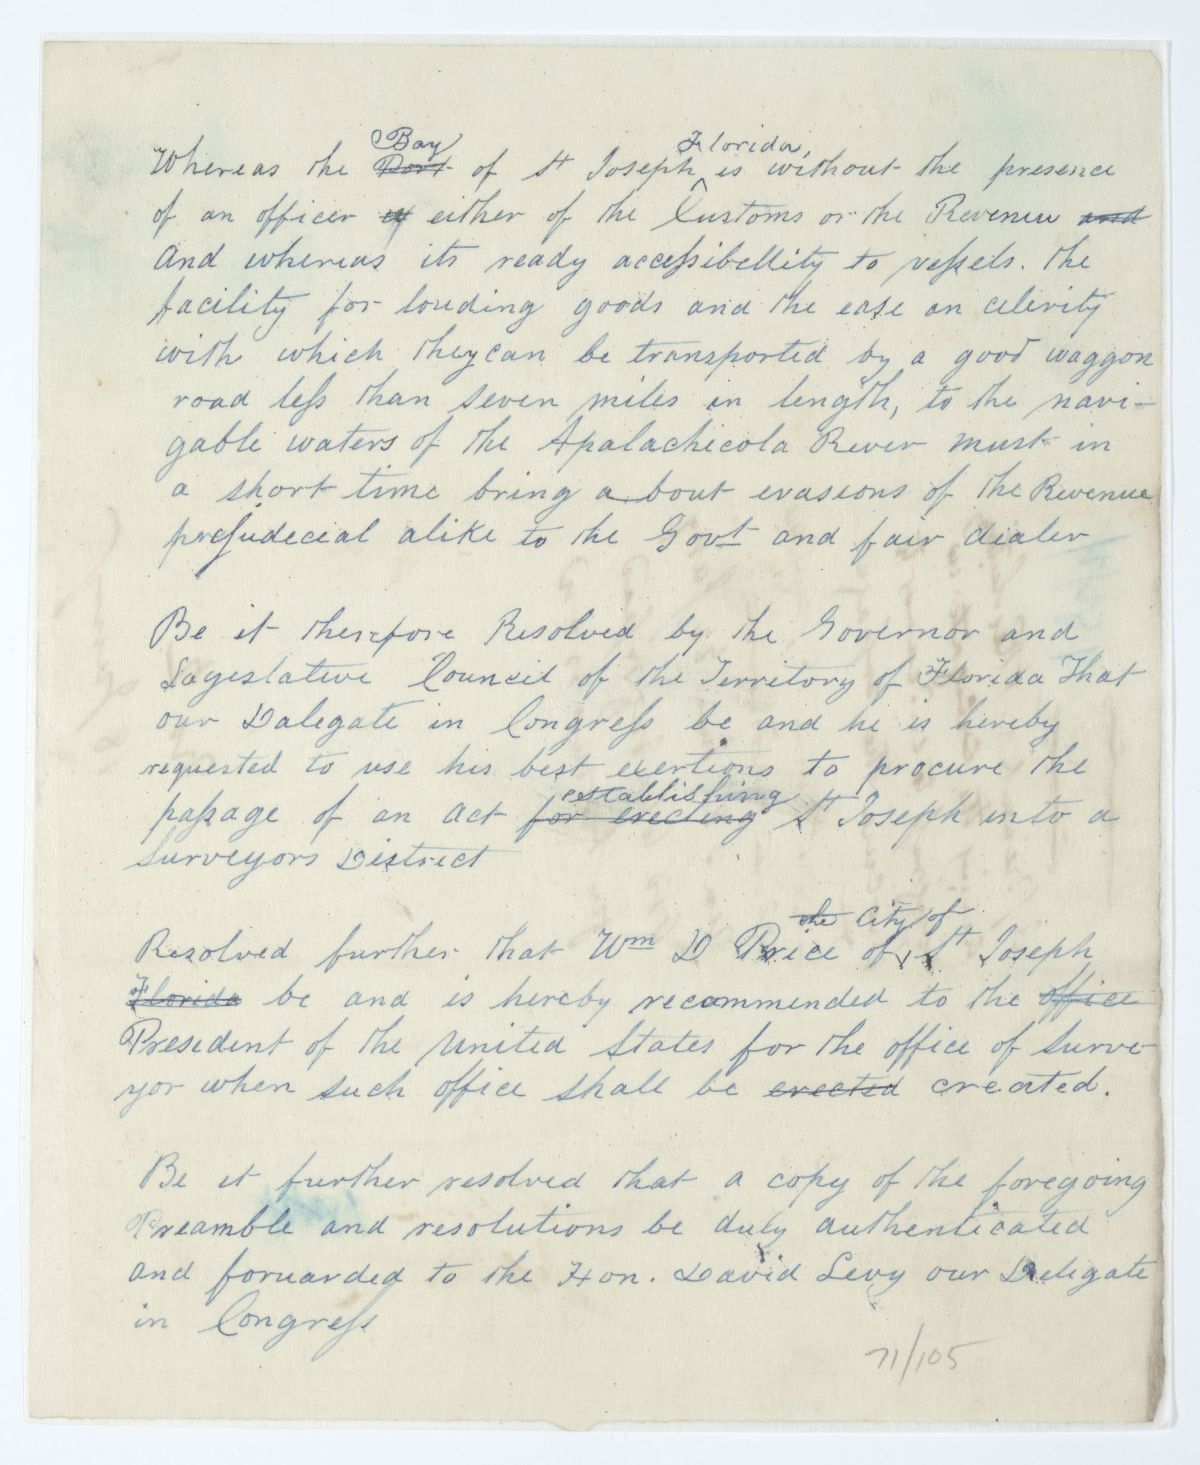 Whereas the ~~Port~~ Bay of St Joseph Florida, is without the presence
of an officer ~~of~~ either of the Customs or the Revenue ~~and~~
And whereas its ready accessibellity to vessels. the
facility for louding goods and the ease an celerity
with which they can be transported by a good waggon
road less than seven miles in length, to the navi-
gable waters of the Apalachicola River must in
a short time bring about evasions of the Revenue
prejudecial alike to the Govt and fair dealer
Be it therefore Resolved by the Governor and
Lagislative Council of the Territory of Florida That
our Dalegate in Congress be and he is hereby
requested to use his best exertions to procure the
passage of an act ~~for erecting~~ establishing St Joseph into a
Surveyors District
Resolved further that Wm D Price of ~~the~~ City of St Joseph
~~Florida~~ be and is hereby recommended to the ~~office~~
President of the United States for the office of Surve-
yor when such office shall be ~~erected~~ created.
Be it further resolved that a copy of the foregoing
Preamble and resolutions be duly authenticated
and forwarded to the Hon. David Levy our Deligate
in Congress
71/105